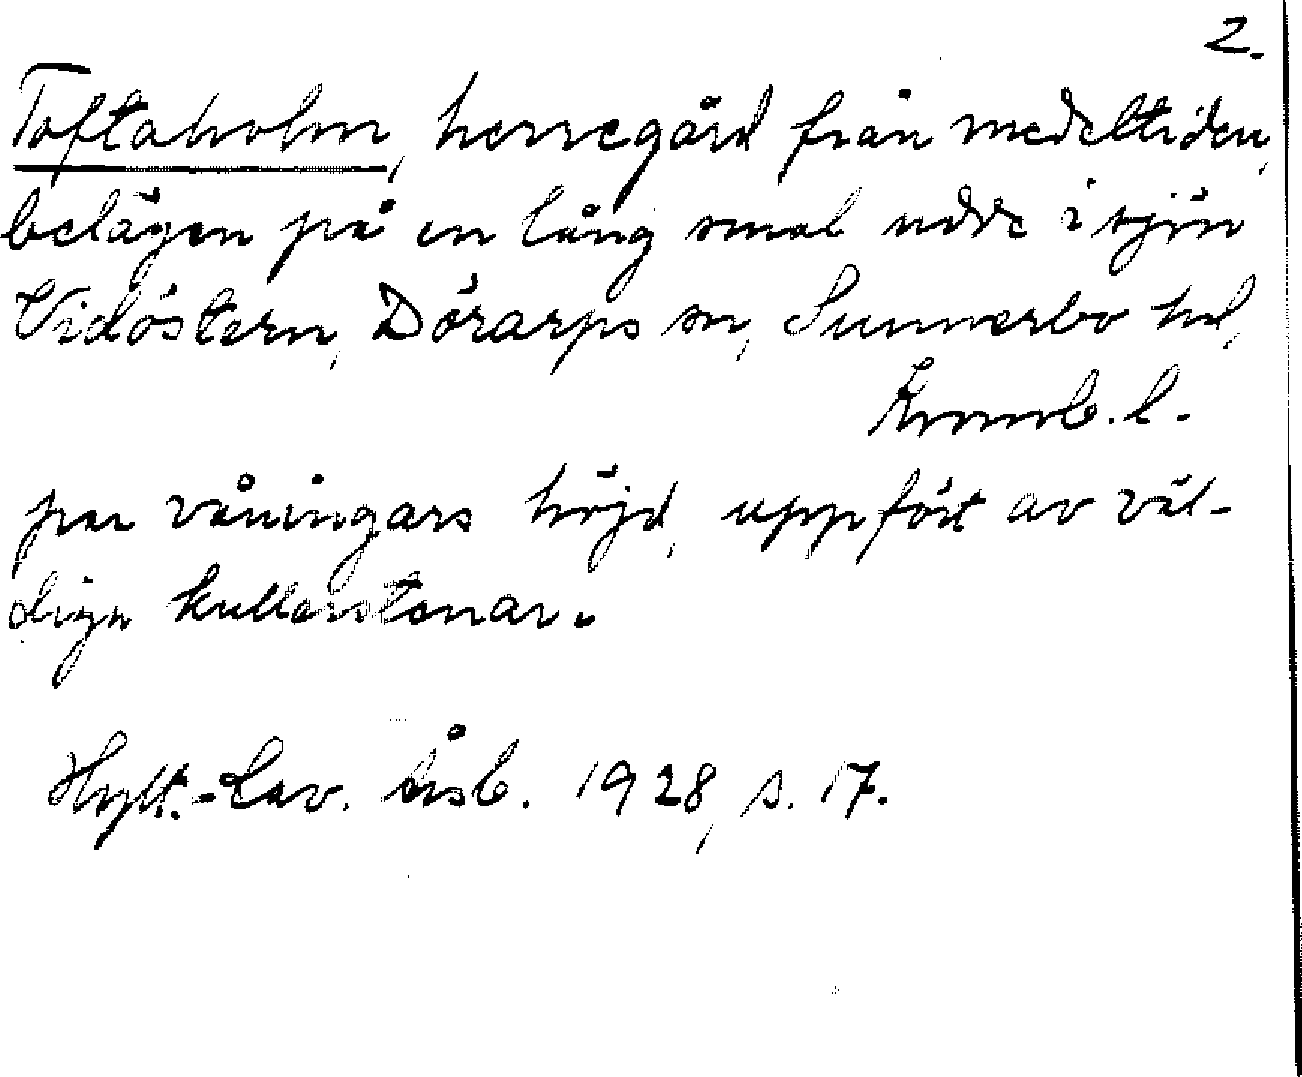 2.
Toftaholm, herregård från medeltiden,
belägen på en lång smal udde i sjön
Vidöstern, Dörarps sn, Sunnerbo hd,
Kronob. l.
par våningars höjd, uppfört av väl-
diga kullerstenar.
Hylt.-Cav. årsb. 1928, s. 17.